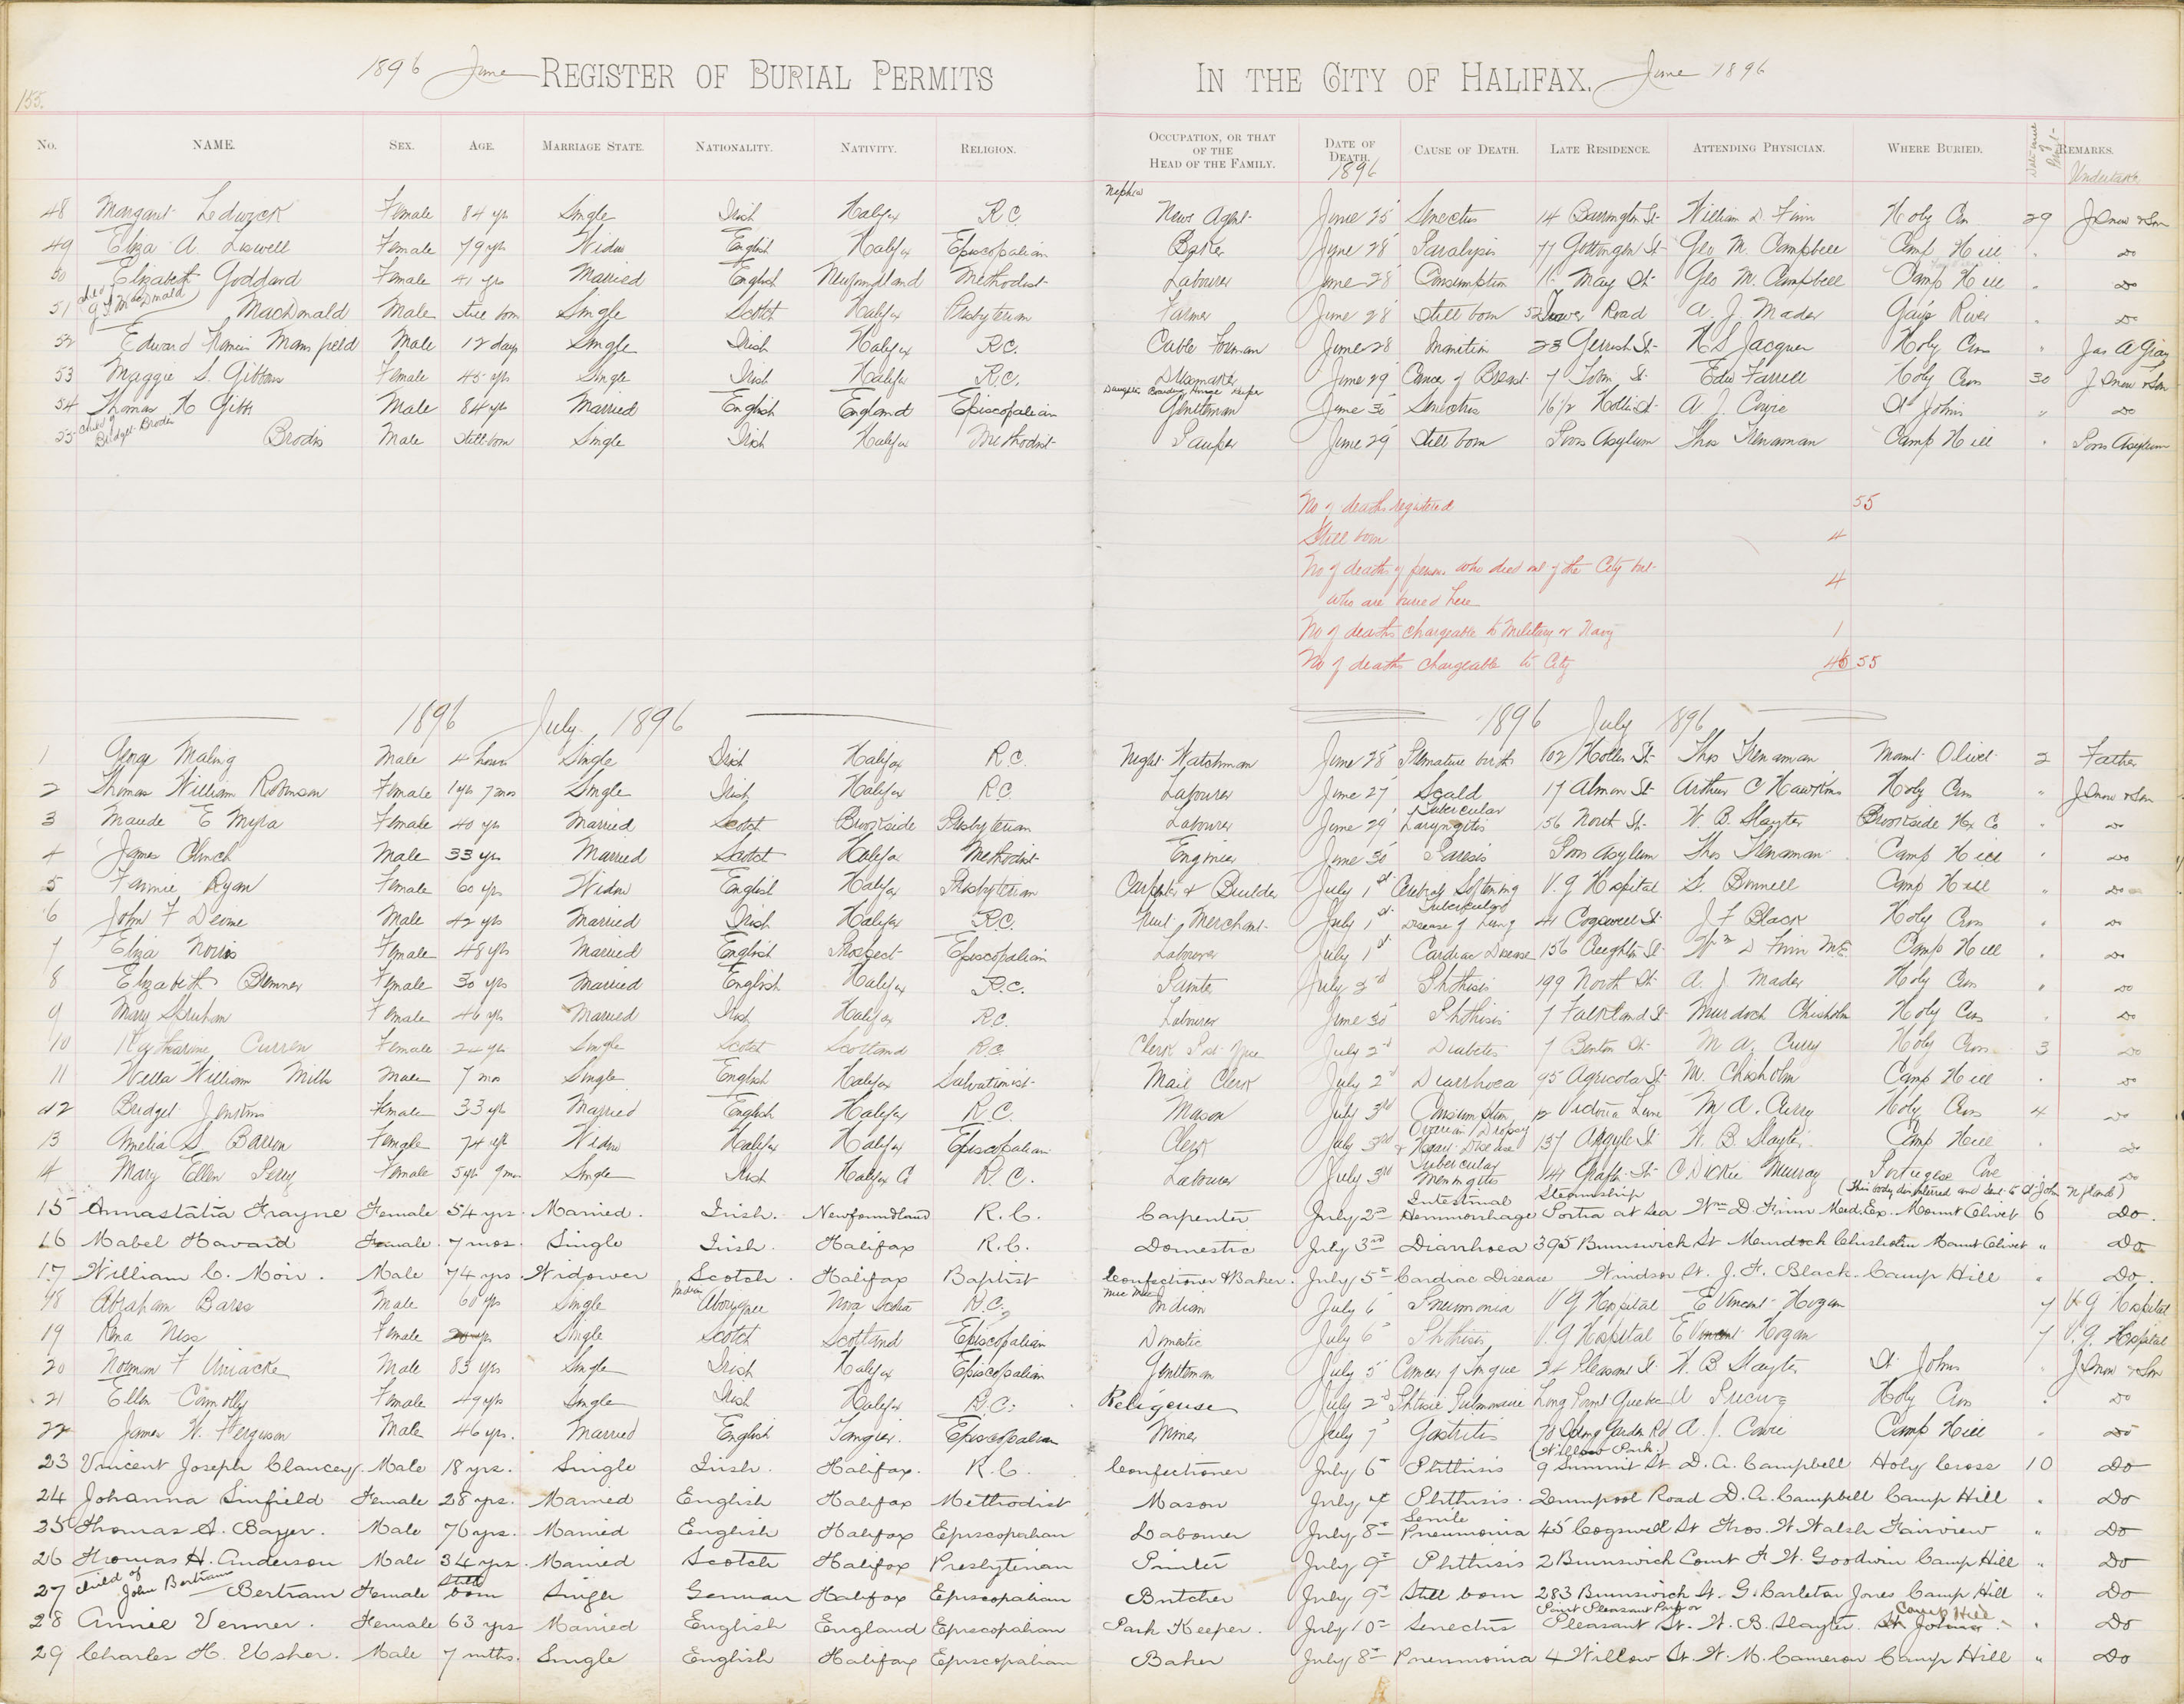 155.
1896 June REGISTER OF BURIAL PERMITS IN THE CITY OF HALIFAX. June 1896
No. NAME. SEX. AGE. MARRIAGE STATE. NATIONALITY. NATIVITY. RELIGION. OCCUPATION, OR THAT OF THE HEAD OF THE FAMILY. DATE OF DEATH. 1896 CAUSE OF DEATH. LATE RESIDENCE. ATTENDING PHYSICIAN. WHERE BURIED. REMARKS. Undertaker
48 Margaret Ledwick Female 84 yrs Single Irish Halifax R.C. Nephew News Agent June 25 Senectus 14 Barrington St William D. Finn Holy Cross 29 J Snow & Son
49 Eliza A Liswell Female 79 yrs Widow English Halifax Episcopalian Baker June 28 Paralysis 77 Gottingen St Geo M. Campbell Camp Hill " Do
50 Elizabeth Goddard Female 41 yrs Married English Newfoundland Methodist Labourer June 28 Consumption 11 May St Geo M. Campbell Camp Hill " Do
51 MacDonald Male Still born Single Scotch Halifax Presbyterian Farmer June 28 Still born 52 Tower Road A. J. Mader Gays River " Do
52 Edward Francis Mansfield Male 12 days Single Irish Halifax R.C. Cable Forman June 28 Inanition 23 Gerrish St H S Jacques Holy Cross " Jas A Gray
53 Maggie S. Gibbons Female 45 yrs Single Irish Halifax R.C. Dressmaker June 29 Cancer of Breast 7 Tobin St Edw Farrell Holy Cross 30 J Snow & Son
54 Thomas H Gibb Male 84 yrs Married English England Episcopalian Daughter Boarding House Keeper Gentleman June 30 Senectus 16 1/2 Hollis St A J. Cowie St Johns " Do
55 Child of Bridget Brodie Brodie Male Still born Single Irish Halifax Methodist Pauper June 29 Still born Poors Asylum Thos Trenaman Camp Hill " Poors Asylum
No of deaths registered 55
Still born 4
No of deaths of persons who died out of the City but
who are buried here 4
No of deaths chargeable to Military or Navy 1
No of deaths chargeable to City 46 55
1896 July 1896 1896 July 1896
1 George Maling Male 4 hours Single Irish Halifax R.C. Night Watchman June 28 Premature birth 102 Hollis St Thos Trenaman Mount Olivet 2 Father
2 Thomas William Robinson Female 1 yr 7 mos Single Irish Halifax R.C. Labourer June 27 Scald 17 Almon St Arthur C Hawkins Holy Cross " J Snow & Son
3 Maude E Myra Female 40 yrs Married Scotch Brookside Presbyterian Labourer June 29 Tubercular Laryngitis 156 North St W. B. Slayter Brookside Hx Co " Do
4 James Clinch Male 33 yrs Married Scotch Halifax Methodist Engineer June 30 Paresis Poors Asylum Thos Trenaman Camp Hill " Do
5 Fannie Ryan Female 60 yrs Widow English Halifax Presbyterian Carpenter & Builder July 1st Cerebral Softening V. G Hospital S. Bonnell Camp Hill " Do
6 John F Devine Male 42 yrs Married Irish Halifax R.C. Fruit Merchant July 1st Tuberculous Disease of Lung 41 Cogswell St J F Black Holy Cross " Do
7 Eliza Norris Female 48 yrs Married English Prospect Episcopalian Labourer July 1st Cardiac Disease 156 Creighton St Wm D Finn M.E. Camp Hill " Do
8 Elizabeth Female 30 yrs Married English Halifax R.C. Painter July 2nd Phthisis 199 North St A. J. Mader Holy Cross " Do
9 Mary Female 46 yrs Married Irish Halifax R.C. Labourer June 30 Phthisis 7 Falkland St Murdoch Chisholm Holy Cross " Do
10 Katharine Curren Female 24 yrs Single Scotch Scotland R.C. Clerk Post Office July 2nd Diabetes 7 Benton St M A. Curry Holy Cross 3 Do
11 William Mills Male 7 mos Single English Halifax Salvationist Mail Clerk July 2nd Diarrhoea 95 Agricola St M. Chisholm Camp Hill " Do
12 Bridget Jenkins Female 33 yrs Married English Halifax R.C. Mason July 3rd Consumption 12 Victoria Lane M A. Curry Holy Cross 4 Do
13 Amelia S. Barron Female 74 yrs Widow Halifax Halifax Episcopalian Clerk July 3rd Ovarian Dropsy & Heart Disease 137 Argyle St W. B. Slayter Camp Hill " Do
14 Mary Ellen Perry Female 5 yrs 9 mos Single Irish Halifax Co R.C. Labourer July 3rd Tubercular Meningitis 141 Grafton St C Dickie Murray Portugese Cove Do
(This body disinterred and sent to St John Nfland)
15 Annastatia Frayne Female 54 yrs. Married. Irish. Newfoundland R.C. Carpenter July 2nd Intestinal Hemmorrhage Steamship Portia at Sea Wm D. Finn Med. Ex. Mount Olivet 6 Do.
16 Mabel Howard Female. 7 mos. Single Irish. Halifax R.C. Domestic July 3rd Diarrhoea 395 Brunswick St Murdoch Chisholm Mount Olivet " Do
17 William C. Moir. Male 74 yrs. Widower Scotch. Halifax Baptist Confectioner & Baker. July 5th Cardiac Disease Windsor St. J. F. Black. Camp Hill " Do.
18 Abraham Bares Male 60 yrs Single Indian Aborignee Nova Scotia R.C. Mic Mac Indian July 6 Pneumonia V G Hospital E Vincent Hogan 7 V G Hospital
19 Rena Ness Female 20 yrs Single Scotch Scotland Episcopalian Domestic July 6 Phthisis V. G Hospital E Vincent Hogan 7 V. G. Hospital
20 Norman F Uniacke Male 83 yrs Single Irish Halifax Episcopalian Gentleman July 5 Cancer of Tongue 24 Pleasant St W. B Slayter St Johns " J Snow & Son
21 Ellen Connolly Female 49 yrs Single Irish Halifax R.C. Religeuse July 2nd Phtisie Pulmonaire Long Point Quebec Holy Cross " Do
22 James W. Ferguson Male 46 yrs. Married English Tangier. Episcopalian Miner July 7 Gastritis 70 Spring Garden Rd A. J. Cowie Camp Hill " Do
23 Vincent Joseph Clancey. Male 18 yrs. Single Irish. Halifax. R.C. Confectioner July 6th Phthisis (Willow Park.) 9 Summit St. D. A. Campbell Holy Cross 10 Do
24 Johanna Sinfield Female 28 yrs. Married English Halifax Methodist Mason July 7th Phthisis. Quinpool Road D. A. Campbell Camp Hill " Do
25 Thomas A. Bayer. Male 76 yrs. Married English Halifax Episcopalian Labourer July 8th Senile Pneumonia 45 Cogswell St Thos. W Walsh Fairview " Do
26 Thomas H. Anderson Male 34 yrs. Married Scotch Halifax Presbyterian Printer July 9th Phthisis 2 Brunswick Court F. W. Goodwin Camp Hill " Do
27 Child of John Bertram Bertram Female Still born Single German Halifax Episcopalian Butcher July 9th Still born 283 Brunswick St. G. Carleton Jones Camp Hill " Do
28 Annie Venner. Female 63 yrs Married English England Episcopalian Park Keeper. July 10th Senectus Point Pleasant Park or Pleasant St. W. B. Slayter. St Johns Camp Hill " Do
29 Charles H. Usher. Male 7 mths. Single English Halifax Episcopalian Baker July 8th Pneumonia 4 Willow St. W. M. Cameron Camp Hill " Do